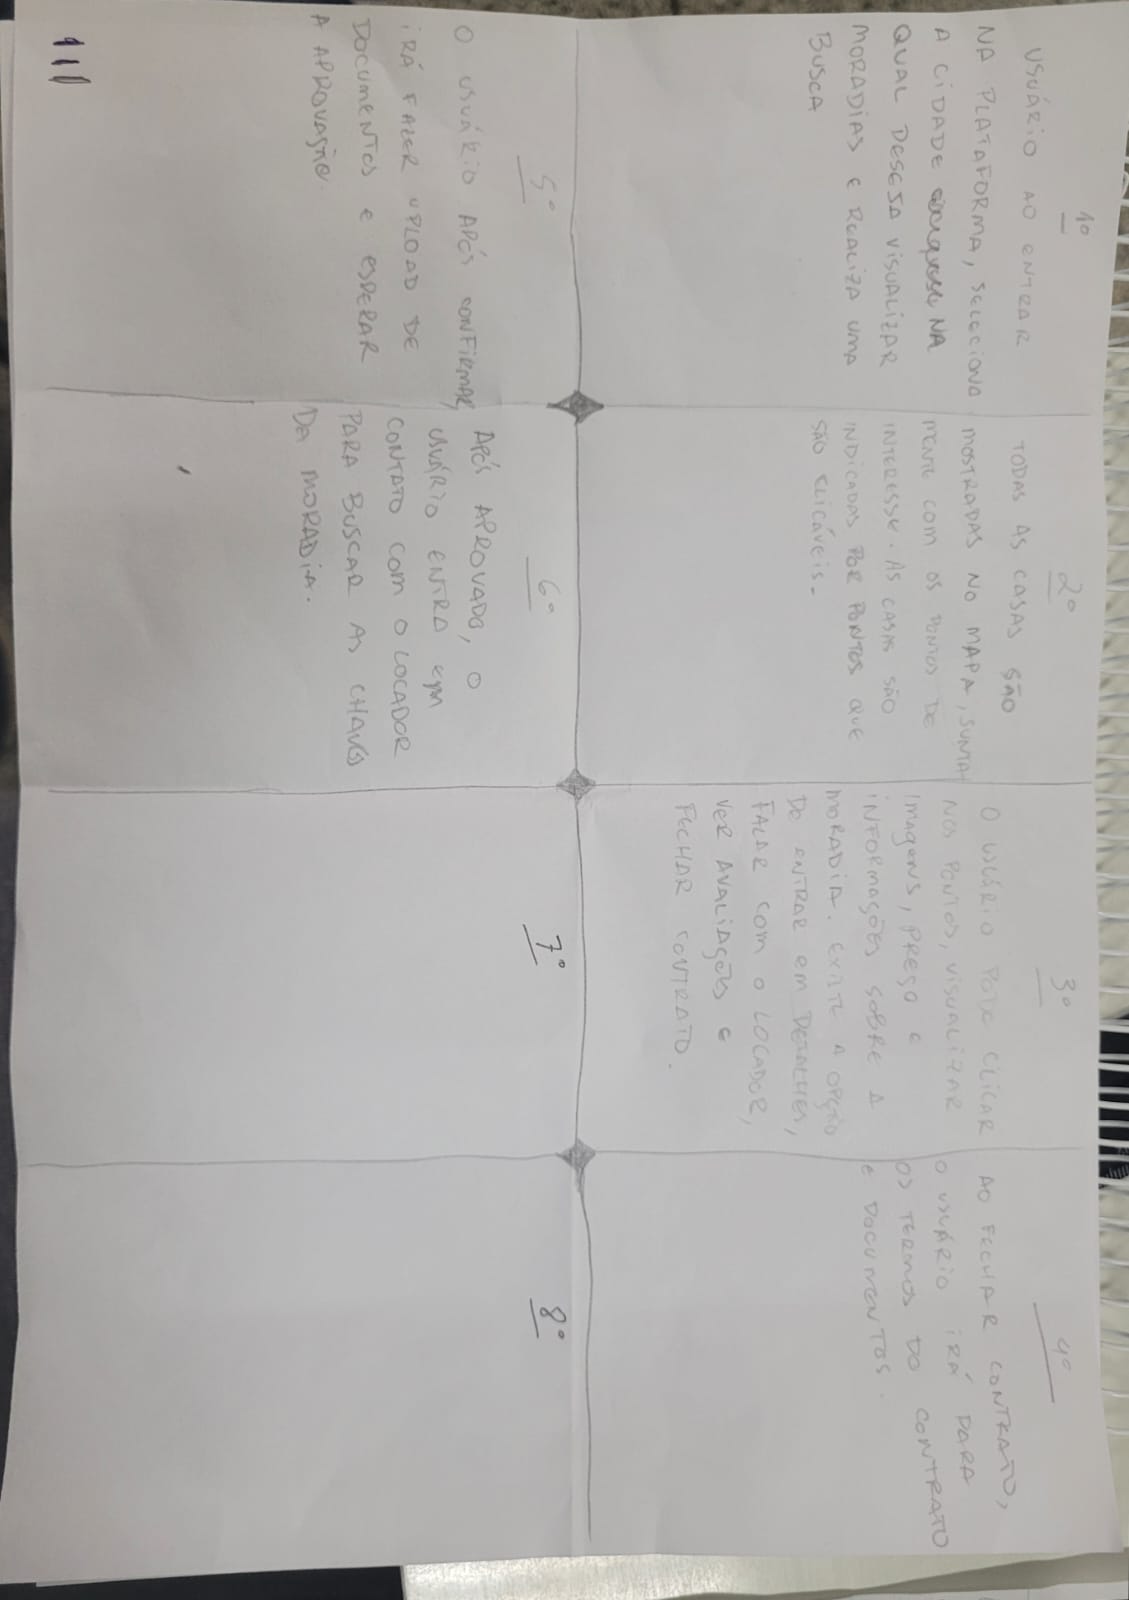 1º
USUÁRIO AO ENTRAR
NA PLATAFORMA, SELECIONA
A CIDADE NA
QUAL DESEJA VISUALIZAR
MORADIAS E REALIZA UMA
BUSCA
2º
TODAS AS CASAS SÃO
MOSTRADAS NO MAPA, JUNTA
MENTE COM OS PONTOS DE
INTERESSE. AS CASAS SÃO
INDICADAS POR PONTOS QUE
SÃO CLICÁVEIS.
3º
O USUÁRIO PODE CLICAR
NOS PONTOS, VISUALIZAR
IMAGENS, PREÇO E
INFORMAÇÕES SOBRE A
MORADIA. EXISTE A OPÇÃO
DE ENTRAR EM DETALHES,
FALAR COM O LOCADOR,
VER AVALIAÇÕES E
FECHAR CONTRATO.
4º
AO FECHAR CONTRATO,
O USUÁRIO IRÁ PARA
OS TERMOS DO CONTRATO
E DOCUMENTOS.
5º
O USUÁRIO APÓS CONFIRMAR,
IRÁ FAZER UPLOAD DE
DOCUMENTOS E ESPERAR
A APROVAÇÃO.
6º
APÓS APROVADO, O
USUÁRIO ENTRA EM
CONTATO COM O LOCADOR
PARA BUSCAR AS CHAVES
DA MORADIA.
7º
8º